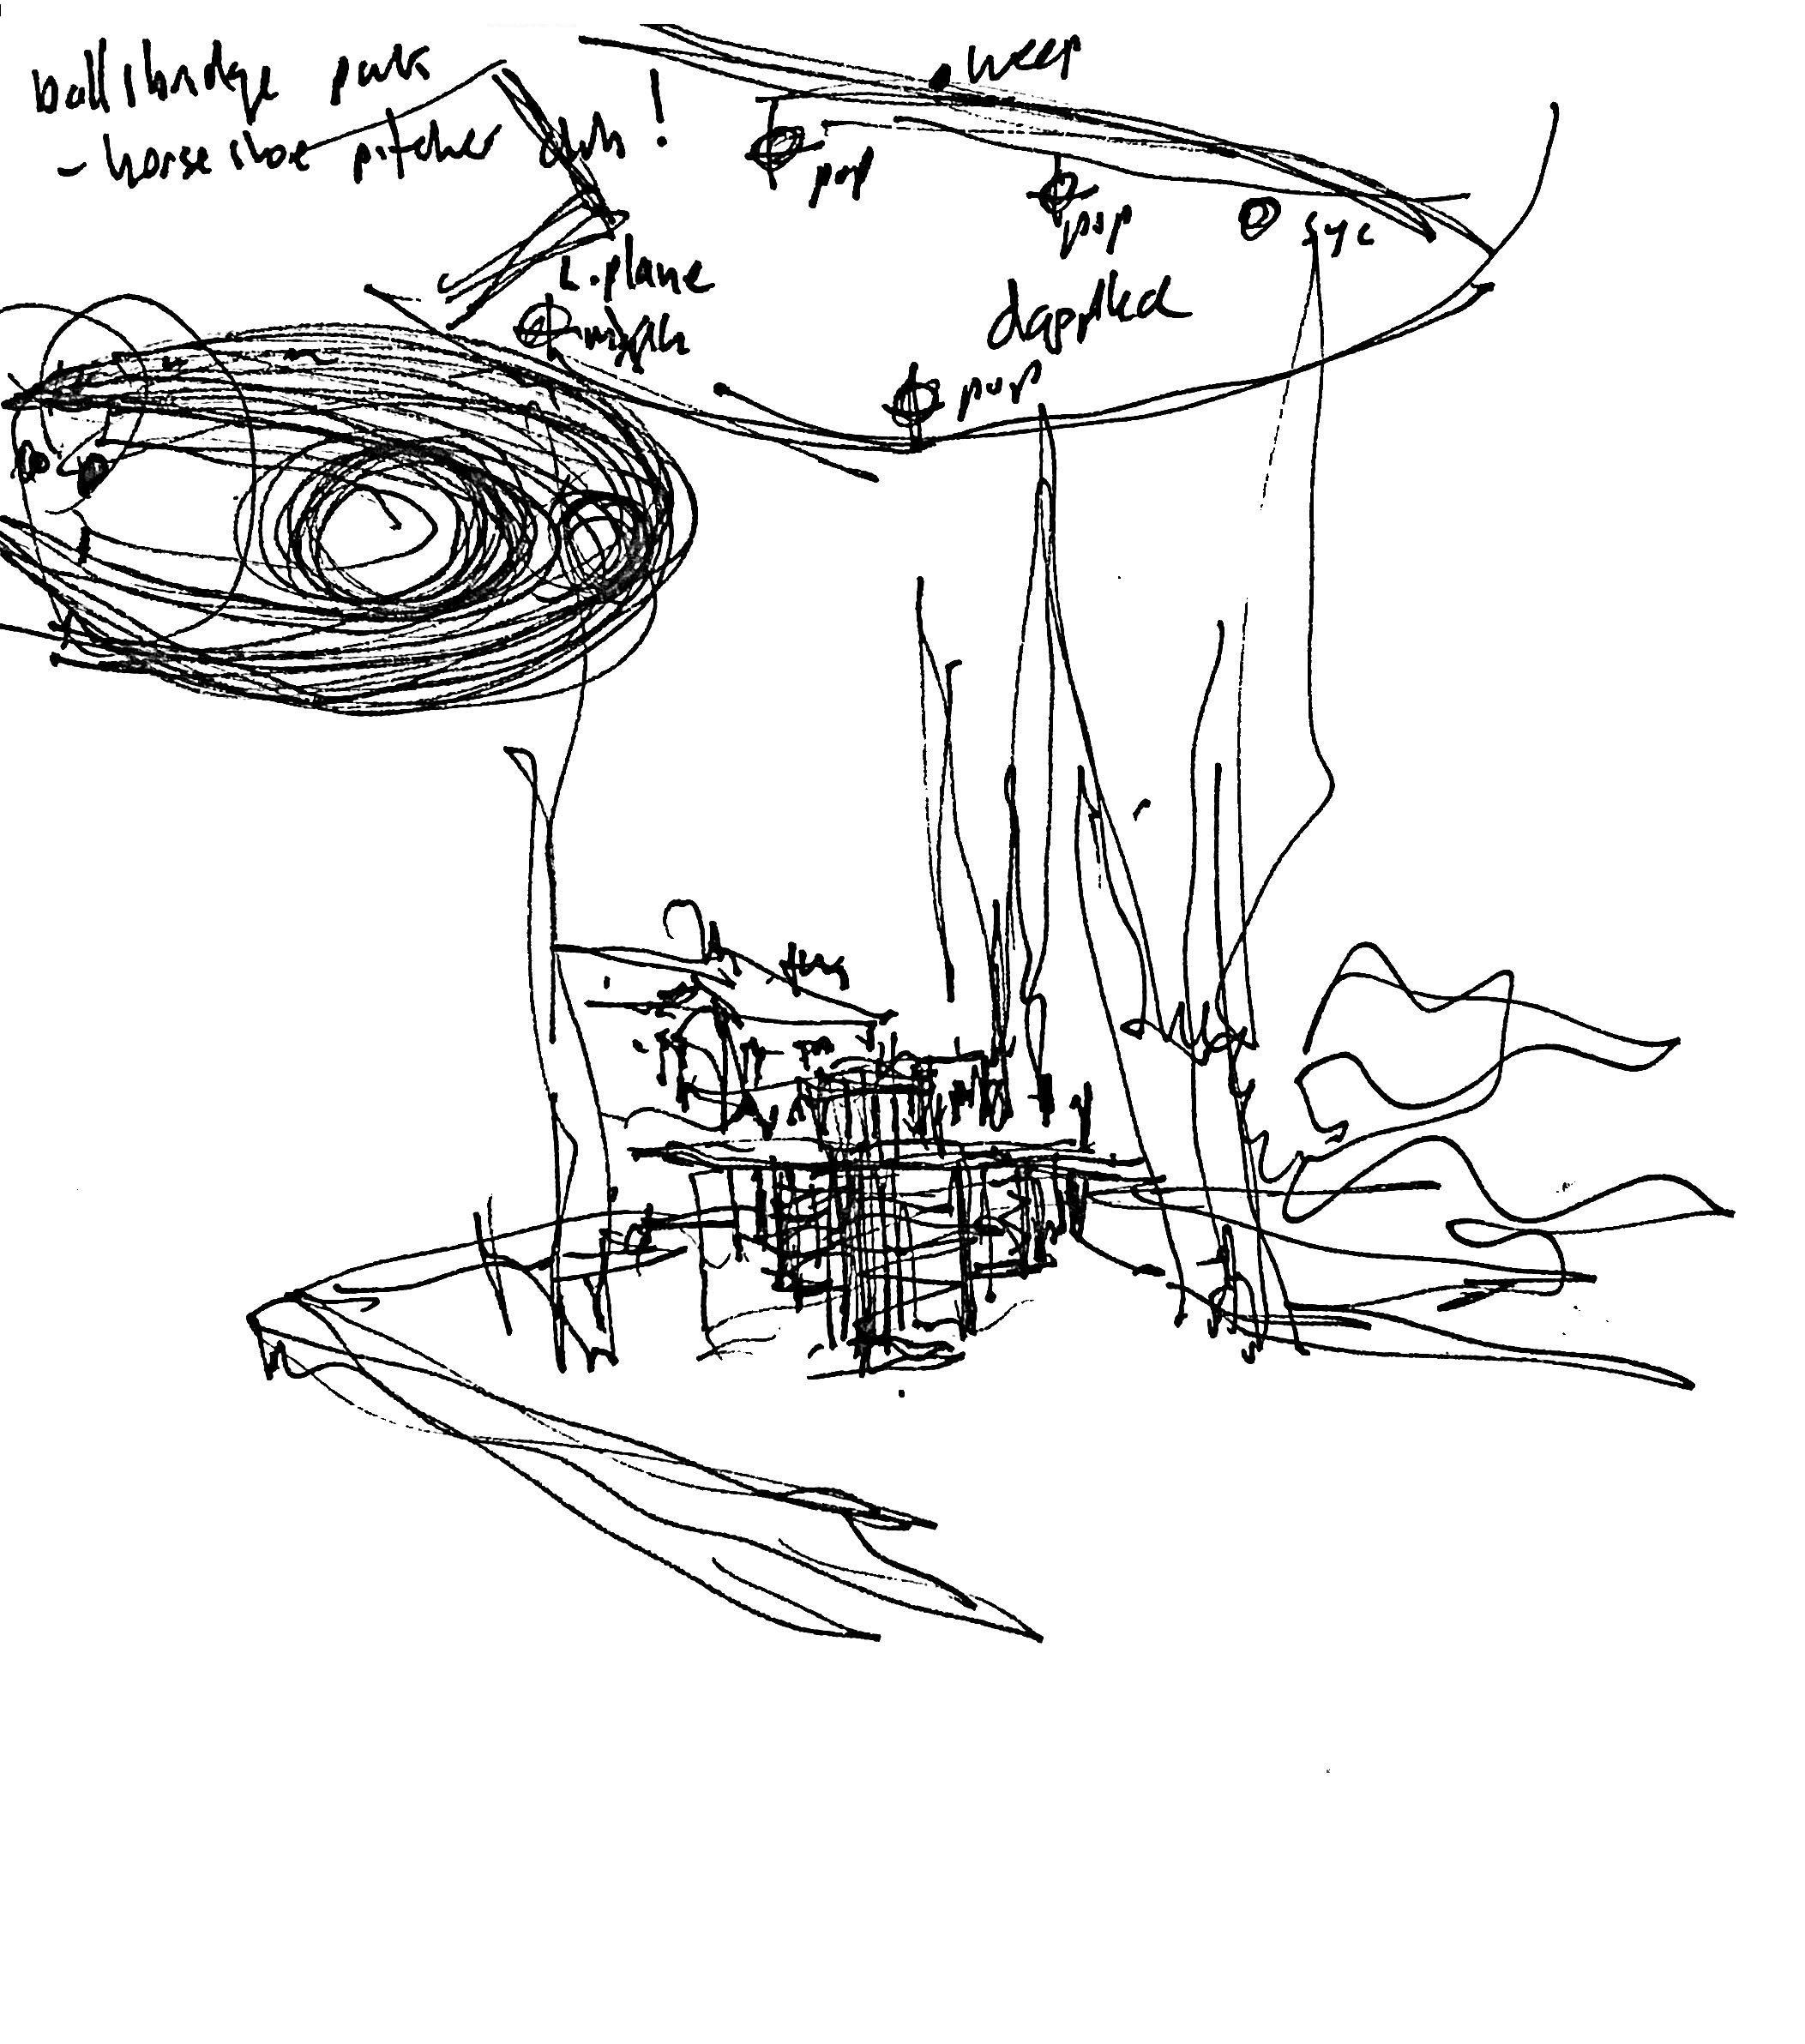 ballsbridge park
- horse shoe pitcher club !
weep
pop
pop
syc
L. plane
dappled
pop